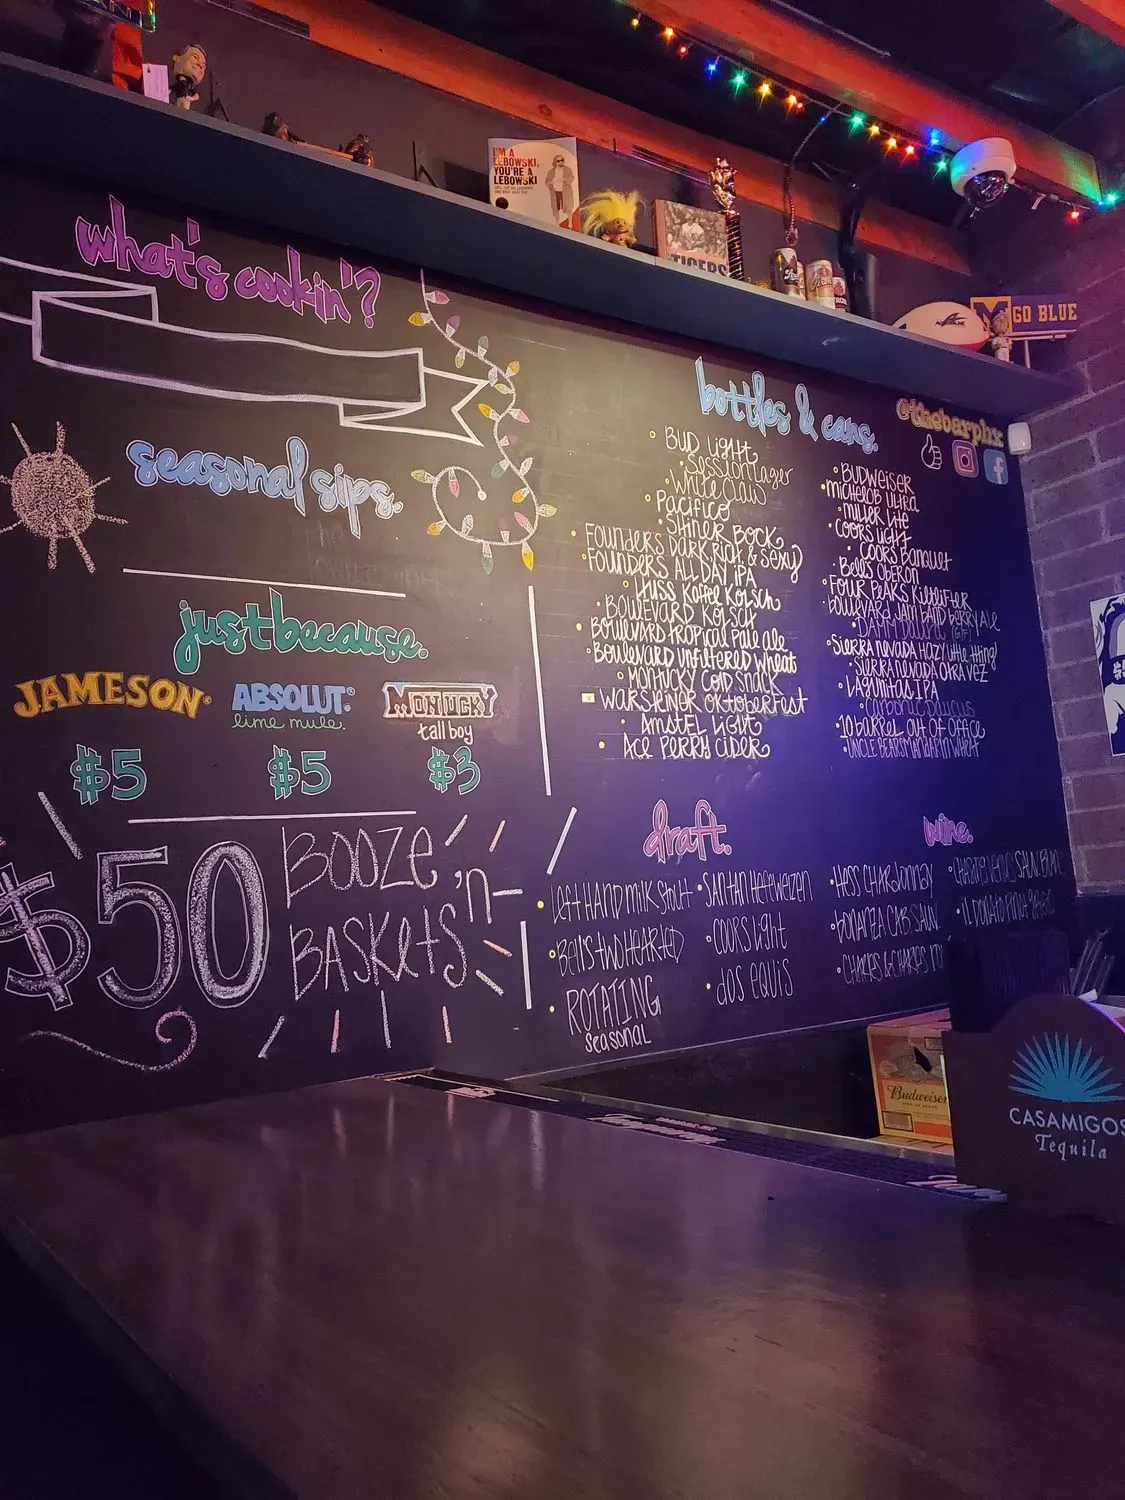 I'M A
LEBOWSKI,
YOU'RE A
LEBOWSKI
TIGERS
M GO BLUE
what's cookin'?
seasonal sips.
just because.
JAMESON
ABSOLUT
lime mule.
MONTUCKY
tall boy
$5
$5
$3
$50 BOOZE 'n BASKETS
bottles & cans.
@thebarphx
BUD LIGHT
Session Lager
White Claw
Pacifico
SHINER BOCK
Founders DARK RICH & SEXY
Founders ALL DAY IPA
HUSS Koffee KOLSCH
BOULEVARD KOLSCH
Boulevard Tropical Pale ale
Boulevard unfiltered wheat
MONTUCKY COLD SNACK
WARSTEINER OKTOBERFEST
AMSTEL LIGHT
ACE PERRY CIDER
BUDWEISER
MICHELOB ULTRA
MILLER LITE
COORS LIGHT
COORS BANQUET
BELL'S OBERON
FOUR PEAKS KILTLIFTER
BOULEVARD JAM BAND BERRY ALE
SIERRA NEVADA HAZY LITTLE THING
SIERRA NEVADA OTRA VEZ
LAGUNITAS IPA
10 BARREL OUT OF OFFICE
draft.
LEFT HAND MILK STOUT
BELL'S TWO HEARTED
ROTATING
SEASONAL
SANTAN HEFEWEIZEN
COORS LIGHT
DOS EQUIS
wine.
HESS CHARDONNAY
BONANZA CAB. SAUV.
CHARLES & CHARLES
Budweiser
CASAMIGOS
Tequila